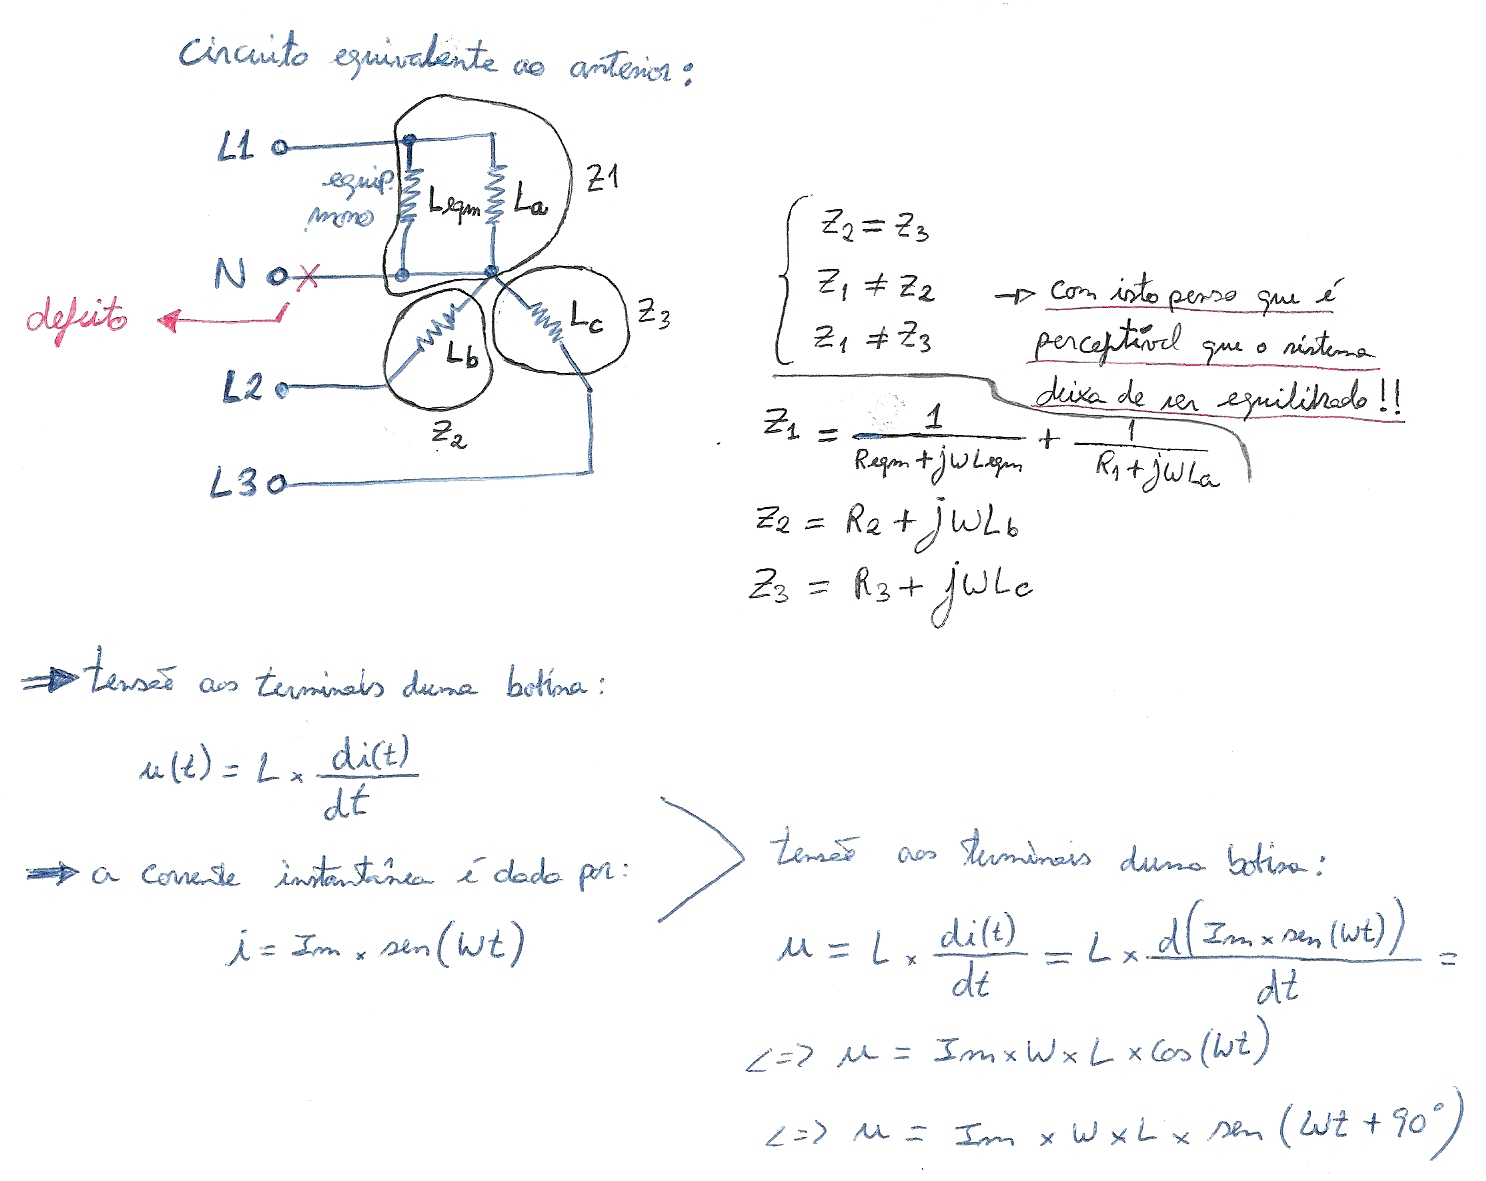 Circuito equivalente ao anterior:
L1
equip.
mono
Leqm
La
Z1
N
X
defeito
Lb
Lc
Z3
L2
Z2
L3
Z2 = Z3
Z1 ≠ Z2
Z1 ≠ Z3
-> com isto penso que é
perceptível que o sistema
deixa de ser equilibrado!!
Z1 = 1/(Reqm + jWLeqm) + 1/(R1 + jWLa)
Z2 = R2 + jWLb
Z3 = R3 + jWLc
=> tensão aos terminais duma bobina:
u(t) = L × di(t)/dt
=> a corrente instantânea é dada por:
i = Im × sen(Wt)
tensão aos terminais duma bobina:
u = L × di(t)/dt = L × d(Im × sen(Wt))/dt =
<=> u = Im × W × L × cos(Wt)
<=> u = Im × W × L × sen(Wt + 90°)